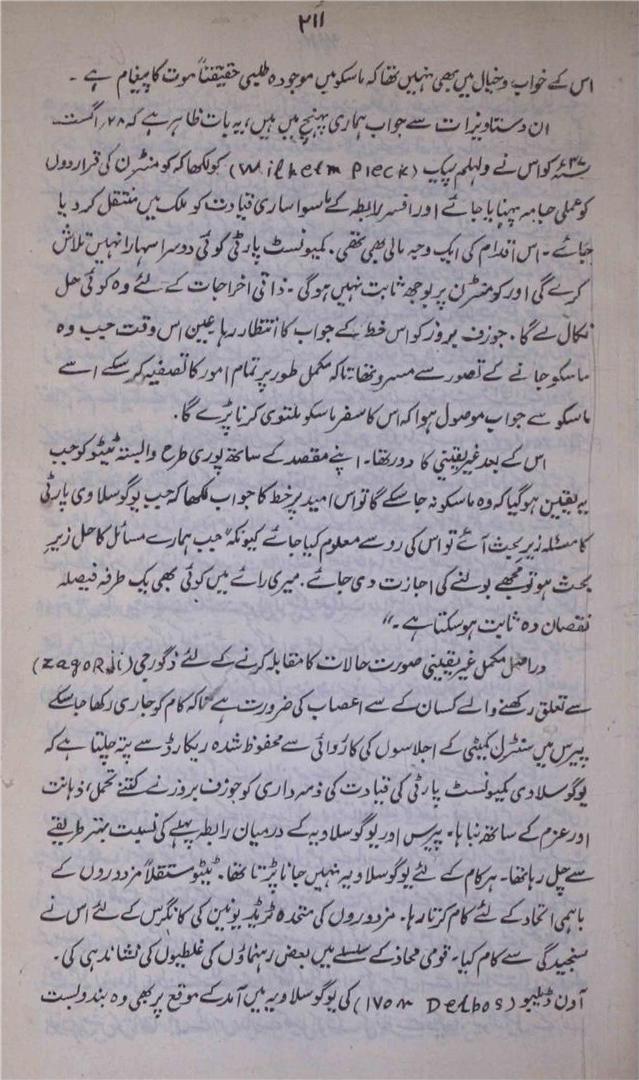 ۲۱۱
اس کے خواب و خیال میں بھی نہیں تھا کہ ماسکو میں موجودہ طلبی حقیقتاً موت کا پیغام ہے ۔
ان دستاویزات سے جو اب ہماری پہنچ میں ہیں، یہ بات ظاہر ہے کہ ۲۸ ؍ اگست
۳۷ء کو اس نے ولہلم پیک (Wilhelm Pieck) کو لکھا کہ کو منٹرن کی قراردوں
کو عملی جامہ پہنایا جائے اور افسر رابطہ کے ماسوا ساری قیادت کو ملک میں منتقل کر دیا
جائے ۔ اس اقدام کی ایک وجہ مالی بھی تھی ۔ کمیونسٹ پارٹی کوئی دوسرا سہارا نہیں تلاش
کرے گی اور کو منٹرن پر بوجھ ثابت نہیں ہوگی ۔ ذاتی اخراجات کے لئے وہ کوئی حل
نکال لے گا ۔ جوزف بروز کو اس خط کے جواب کا انتظار رہا عین اس وقت جب وہ
ماسکو جانے کے تصور سے مسرور تھا تاکہ مکمل طور پر تمام امور کا تصفیہ کر سکے اسے
ماسکو سے جواب موصول ہوا کہ اس کا سفر ماسکو ملتوی کرنا پڑے گا ۔
اس کے بعد غیر یقینی کا دور تھا ۔ اپنے مقصد کے ساتھ پوری طرح وابستہ ٹیٹو کو جب
یہ یقین ہو گیا کہ وہ ماسکو نہ جا سکے گا تو اس امید پر خط کا جواب لکھا کہ جب یوگوسلاوی پارٹی
کا مسئلہ زیر بحث آئے تو اس کی رو سے معلوم کیا جائے کیونکہ "جب ہمارے مسائل کا حل زیر
بحث ہو تو مجھے بولنے کی اجازت دی جائے ۔ میری رائے میں کوئی بھی یک طرفہ فیصلہ
نقصان دہ ثابت ہو سکتا ہے ۔"
دراصل مکمل غیر یقینی صورت حالات کا مقابلہ کرنے کے لئے زگورجی (zagoRji)
سے تعلق رکھنے والے کسان کے سے اعصاب کی ضرورت ہے تاکہ کام کو جاری رکھا جا سکے
پیرس میں سنٹرل کمیٹی کے اجلاسوں کی کاروائی سے محفوظ شدہ ریکارڈ سے پتہ چلتا ہے کہ
یوگوسلادی کمیونسٹ پارٹی کی قیادت کی ذمہ داری کو جوزف بروز نے کتنے تحمل، ذہانت
اور عزم کے ساتھ نبھا ہا ۔ پیرس اور یوگوسلاویہ کے درمیان رابطہ پہلے کی نسبت بہتر طریقے
سے چل رہا تھا ۔ ہر کام کے لئے یوگوسلاویہ نہیں جانا پڑتا تھا ۔ ٹیٹو مستقلاً مزدوروں کے
باہمی اتحاد کے لئے کام کرتا رہا ۔ مزدوروں کی متحدہ ٹریڈ یونین کی کانگرس کے لئے اس نے
سنجیدگی سے کام کیا ۔ قومی محاذ کے سلسلے میں بعض رہنماؤں کی غلطیوں کی نشاندہی کی ۔
آون ڈیلبو (Ivon Delbos) کی یوگوسلاویہ میں آمد کے موقع پر بھی وہ بندوبست